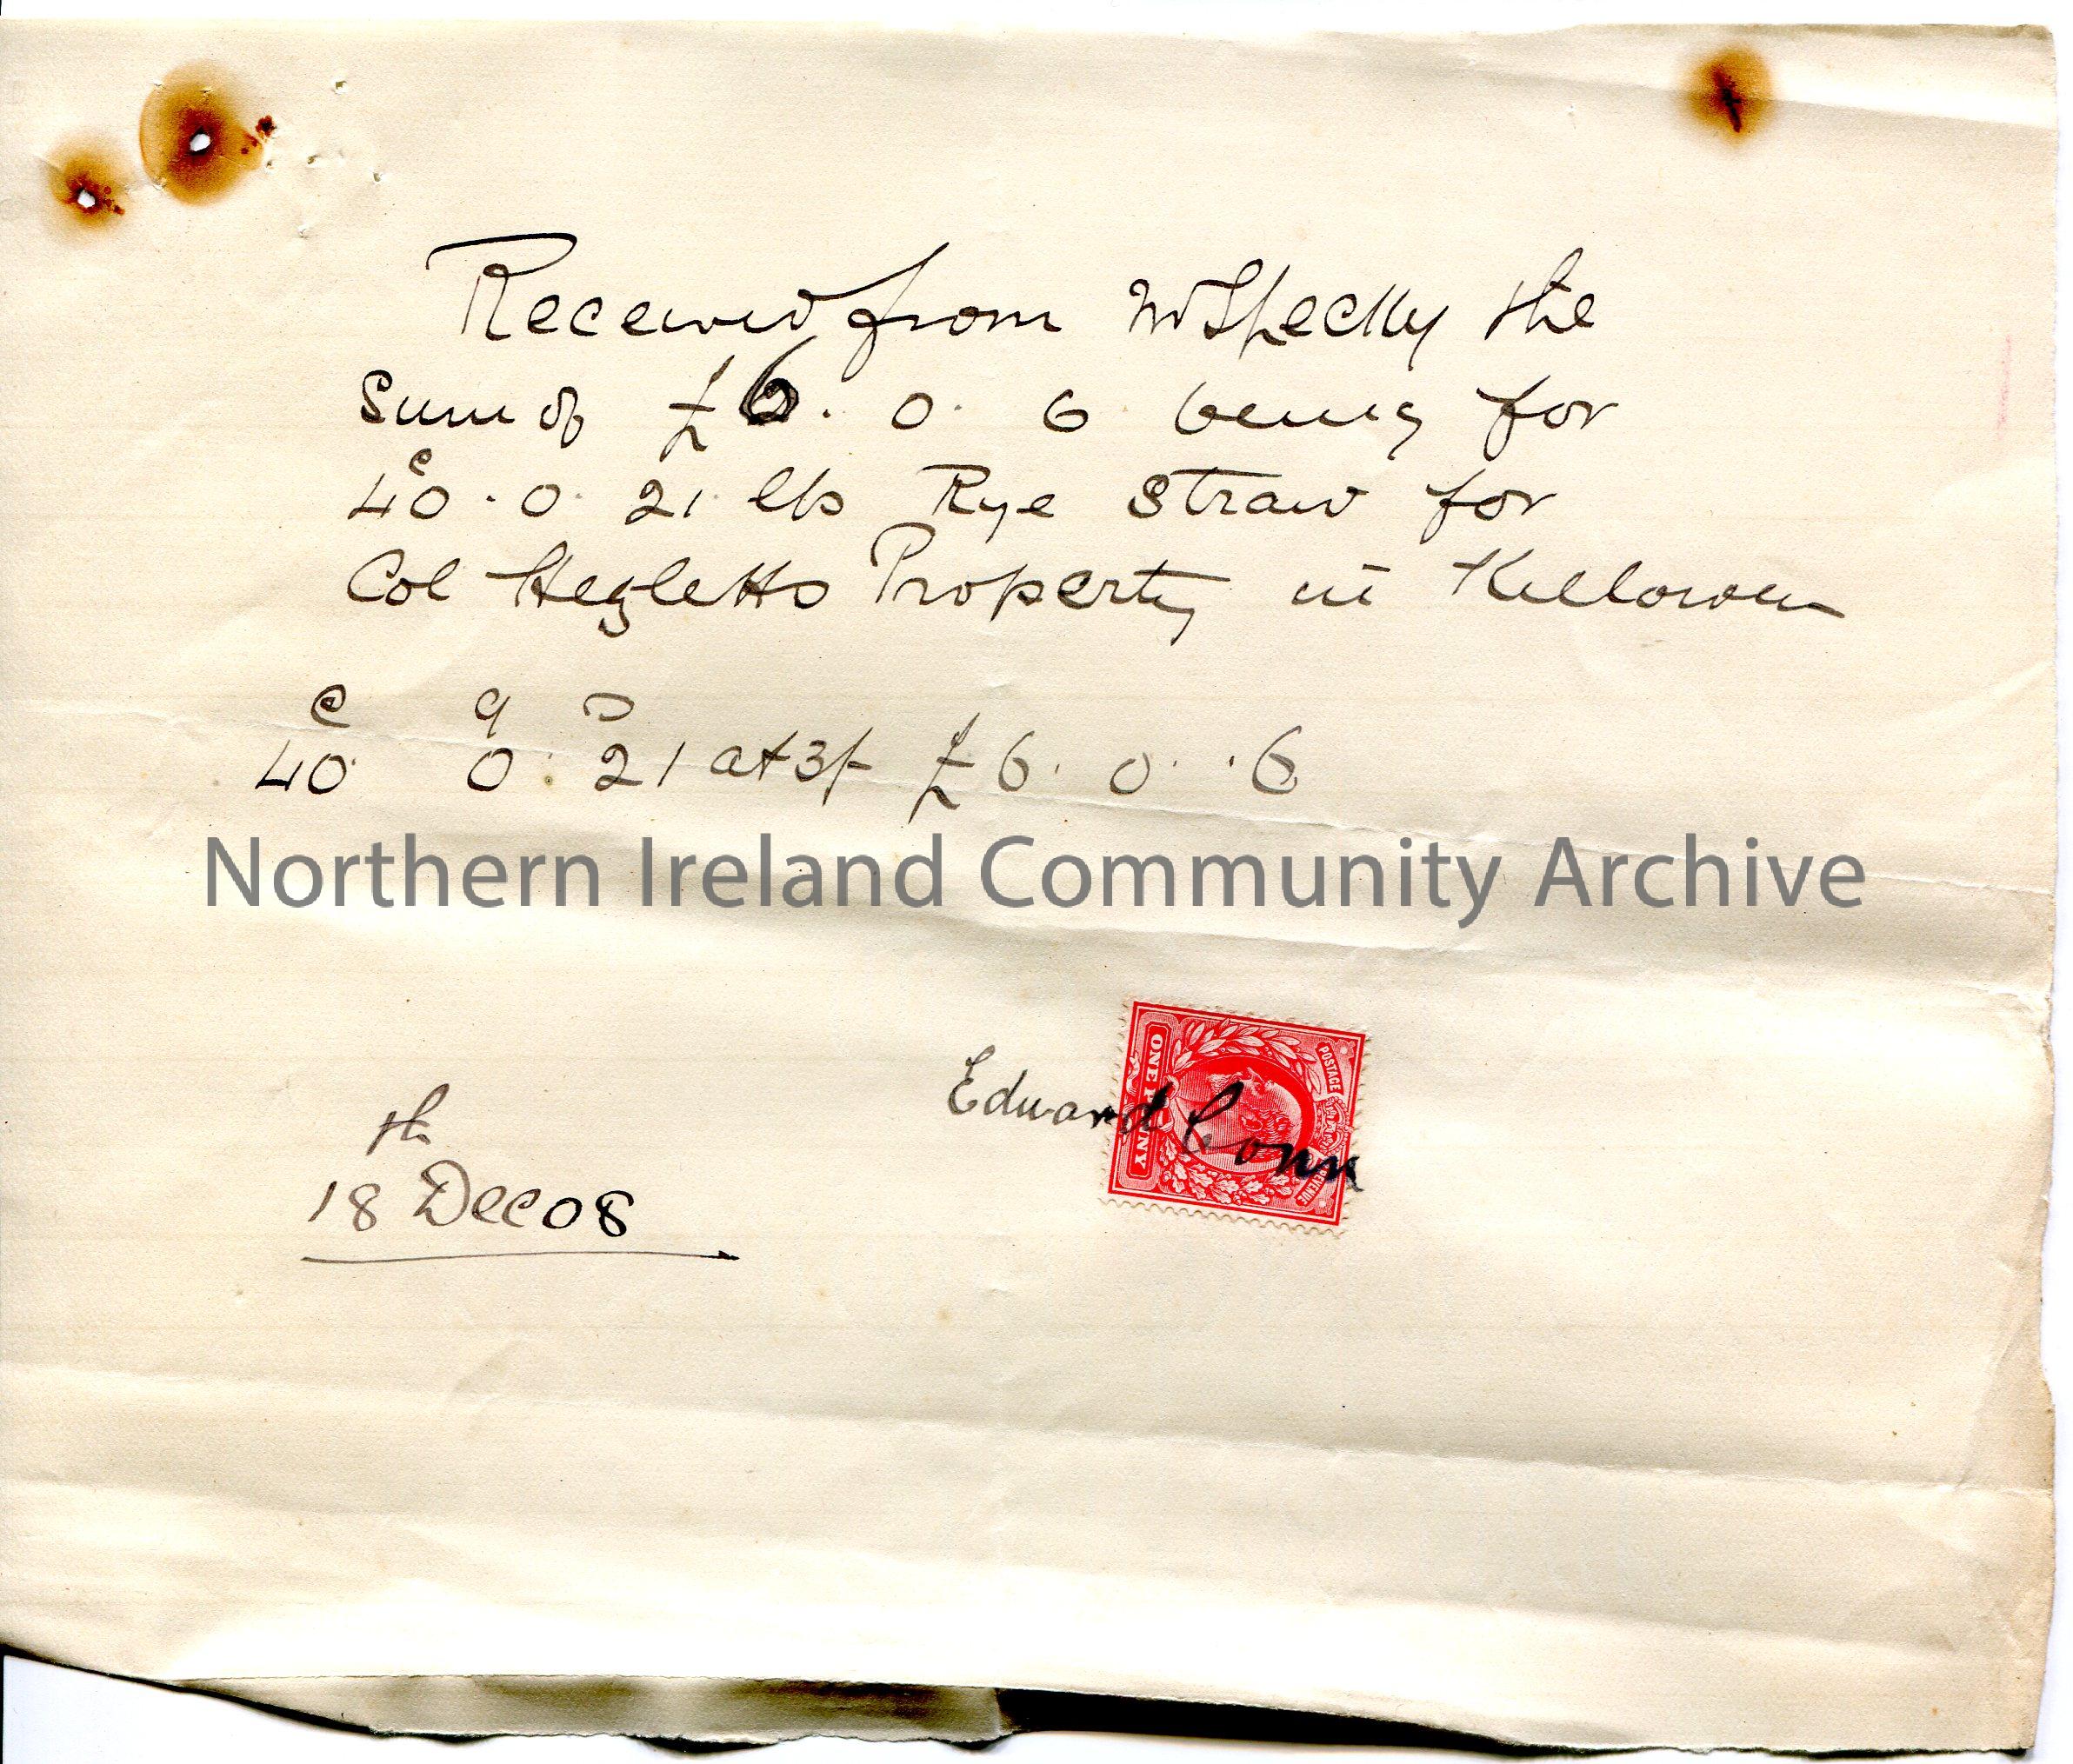 Received from W Specky the
Sum of £6. 0. 6 being for
40 c. 0. 21 lbs Rye Straw for
Col Hezletts Property in Killowen
c q
40. 0. 21 at 3/- £6. 0. 6
Northern Ireland Community Archive
POSTAGE
REVENUE
ONE PENNY
Edward Conn
th
18 Dec 08